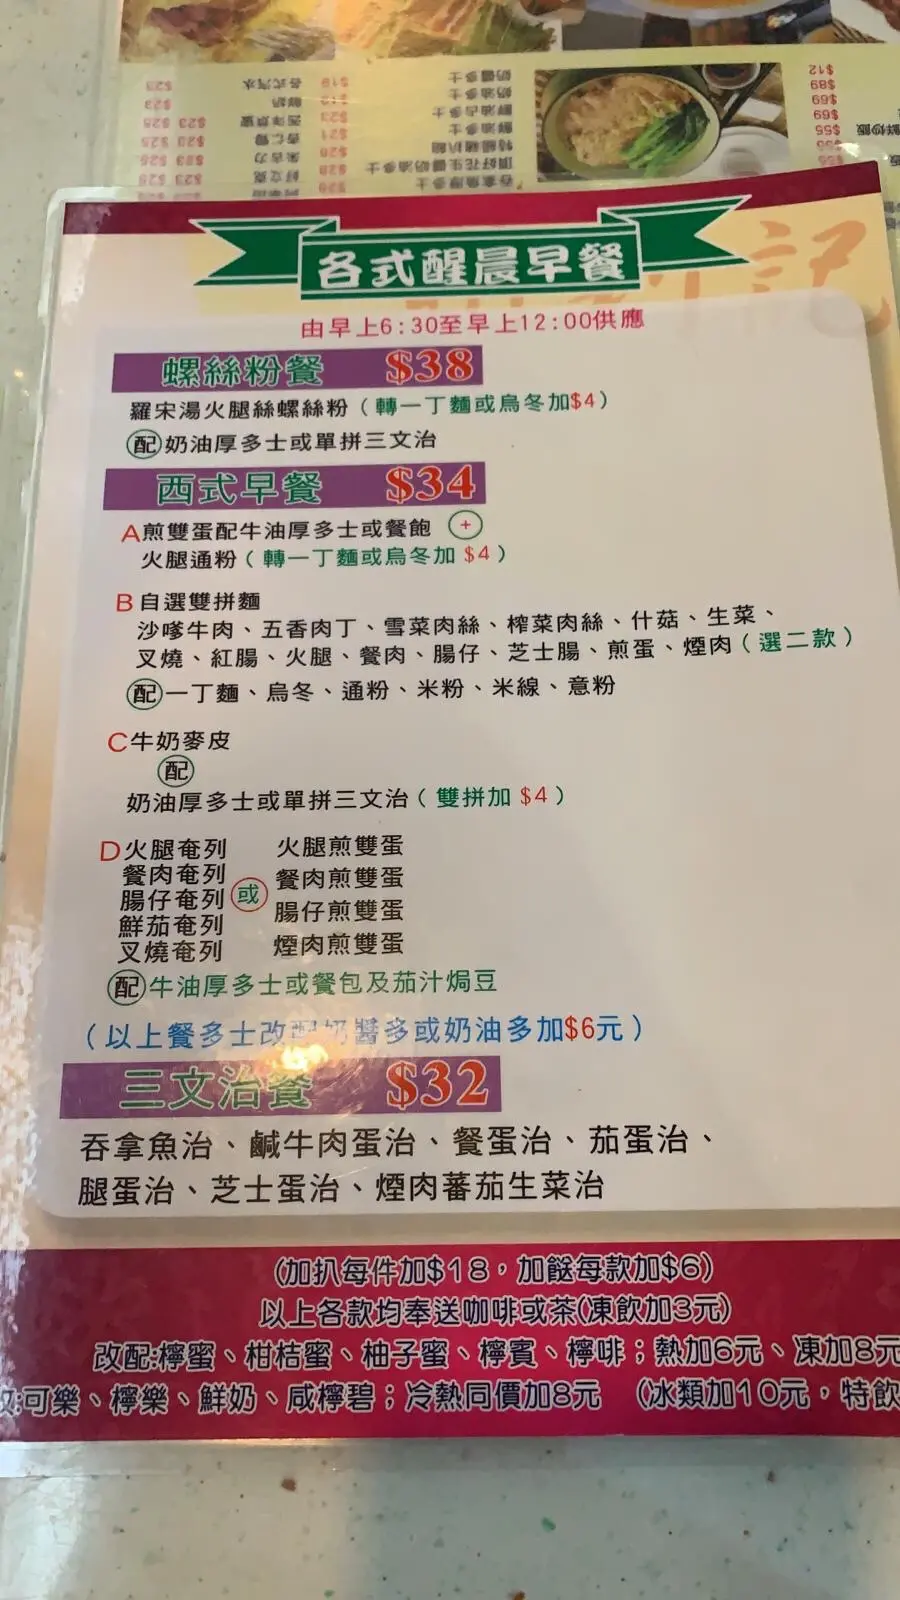 各式醒晨早餐
由早上6:30至早上12:00供應
螺絲粉餐 $38
羅宋湯火腿絲螺絲粉(轉一丁麵或烏冬加$4)
配 奶油厚多士或單拼三文治
西式早餐 $34
A煎雙蛋配牛油厚多士或餐飽 +
火腿通粉(轉一丁麵或烏冬加 $4)
B自選雙拼麵
沙嗲牛肉、五香肉丁、雪菜肉絲、榨菜肉絲、什菇、生菜、
叉燒、紅腸、火腿、餐肉、腸仔、芝士腸、煎蛋、煙肉(選二款)
配一丁麵、烏冬、通粉、米粉、米線、意粉
C牛奶麥皮
配
奶油厚多士或單拼三文治(雙拼加 $4)
D火腿奄列 火腿煎雙蛋
餐肉奄列 餐肉煎雙蛋
腸仔奄列 或 腸仔煎雙蛋
鮮茄奄列 煙肉煎雙蛋
叉燒奄列
配牛油厚多士或餐包及茄汁焗豆
(以上餐多士改配奶醬多或奶油多加$6元)
三文治餐 $32
吞拿魚治、鹹牛肉蛋治、餐蛋治、茄蛋治、
腿蛋治、芝士蛋治、煙肉蕃茄生菜治
(加扒每件加$18，加餸每款加$6)
以上各款均奉送咖啡或茶(凍飲加3元)
改配:檸蜜、柑桔蜜、柚子蜜、檸賓、檸啡；熱加6元、凍加8元
:可樂、檸樂、鮮奶、咸檸碧；冷熱同價加8元 (冰類加10元，特飲